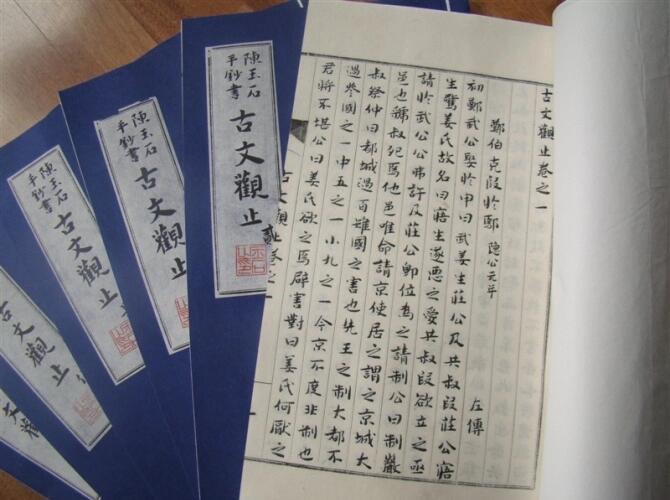 古文觀止卷之一
鄭伯克段於鄢 隱公元年 左傳
初鄭武公娶於申曰武姜生莊公及共叔段莊公寤
生驚姜氏故名曰寤生遂惡之愛共叔段欲立之亟
請於武公公弗許及莊公即位為之請制公曰制巖
邑也虢叔死焉他邑唯命請京使居之謂之京城大
叔祭仲曰都城過百雉國之害也先王之制大都不
過參國之一中五之一小九之一今京不度非制也
君將不堪公曰姜氏欲之焉辟害對曰姜氏何厭之
古文觀止卷之一
陳玉石
平鈔書
古文觀止
陳玉石
平鈔書
古文觀止
陳玉石
平鈔書
古文觀止
古文觀止
文觀